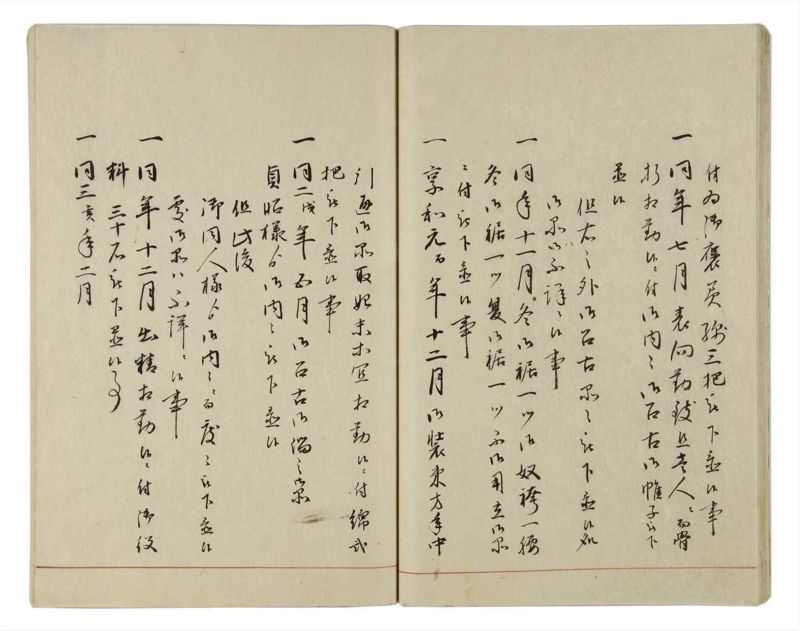 付為御褒美綿三把被下置候事
一同年七月表向勤致且老人ニ而骨
折相勤候ニ付御内々御召古御帷子被下
置候
但右之外御召古品々被下置候処
御品ハ不詳ニ候事
一同年十一月冬御裾一ツ御奴袴一腰
冬御裾一ツ夏御裾一ツ不御用立御品
ニ付被下置候事
一享和元酉年十二月御装束方年中
引通御品取始末等宜相勤候ニ付綿弐
把被下置候事
一同二戌年五月御召古御綿之御品
貞昭様ゟ御内々被下置候
但此後
御同人様ゟ御内々ニ而度々被下置候
処御品ハ不詳ニ候事
一同年十二月出精相勤候ニ付御役
料三十石被下置候事
一同三亥年二月